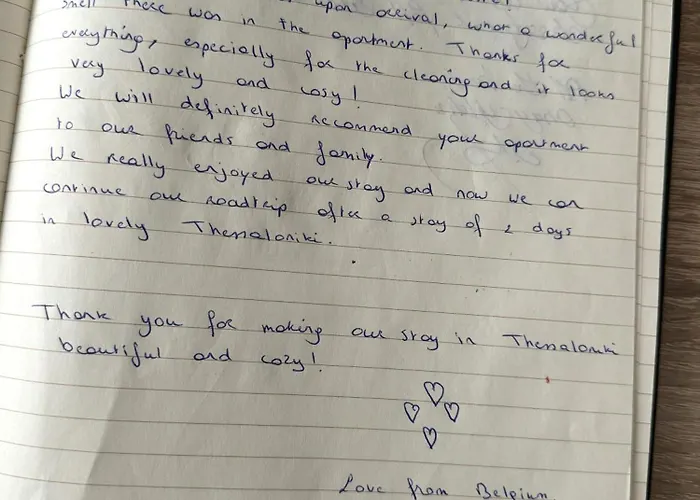 smell there was in the apartment. Thanks for
upon arrival, what a wonderful
everything, especially for the cleaning and it looks
very lovely and cosy!
We will definitely recommend your apartment
to our friends and family.
We really enjoyed our stay and now we can
continue our roadtrip after a stay of 2 days
in lovely Thessaloniki.
Thank you for making our stay in Thessaloniki
beautiful and cozy!
Love from Belgium